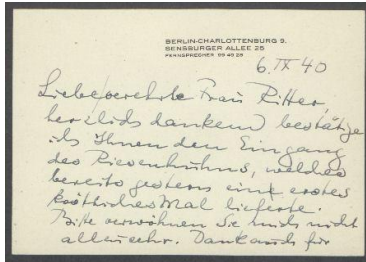 BERLIN-CHARLOTTENBURG 9.
SENSBURGER ALLEE 25
FERNSPRECHER 99 48 28
6. IX 40
Liebe verehrte Frau Ritter,
herzlich dankend bestätige
ich Ihnen den Eingang
des Riesenhuhns, welches
bereits gestern ein erstes
köstliches Mal lieferte.
Bitte verwöhnen Sie mich nicht
allzusehr. Dank auch für